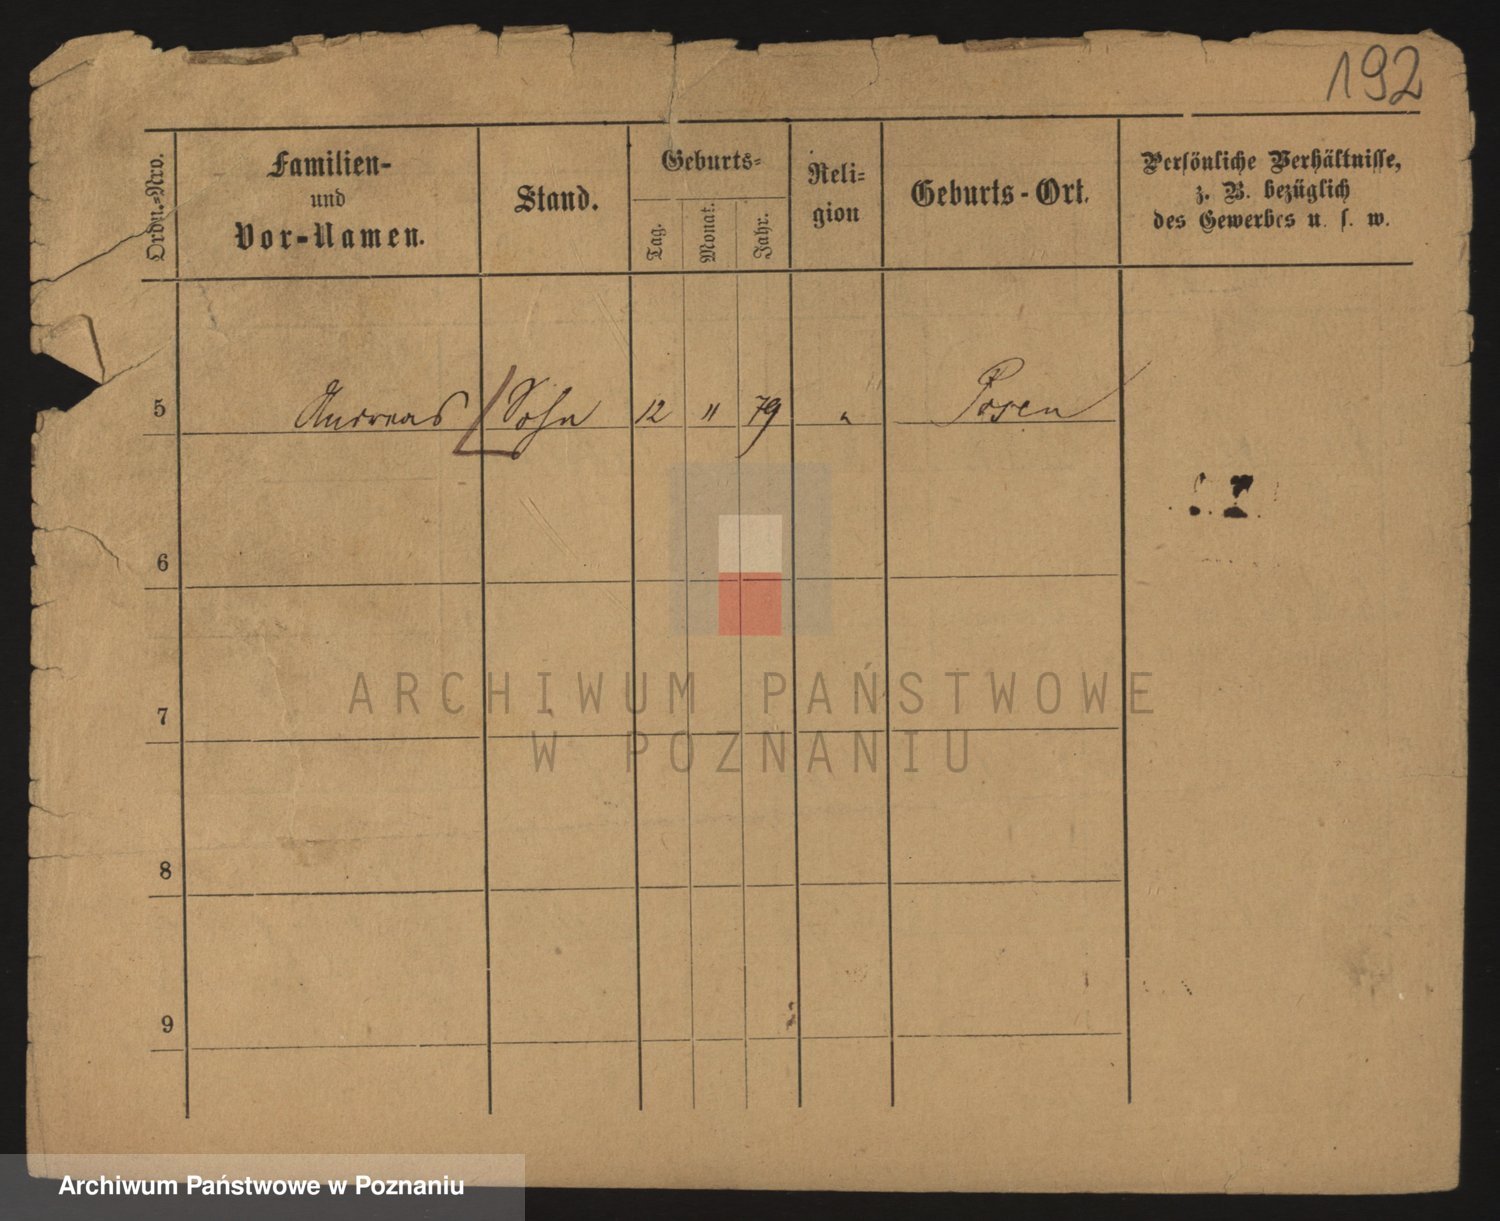 192
Ordn.-Nro.
Familien-
und
Vor-Namen.
Stand.
Geburts-
Tag.
Monat.
Jahr.
Reli-
gion
Geburts-Ort.
Persönliche Verhältnisse,
z. B. bezüglich
des Gewerbes u. s. w.
5 Andreas Sohn 12 11 79 " Posen
6
7
8
9
ARCHIWUM PAŃSTWOWE
W POZNANIU
Archiwum Państwowe w Poznaniu